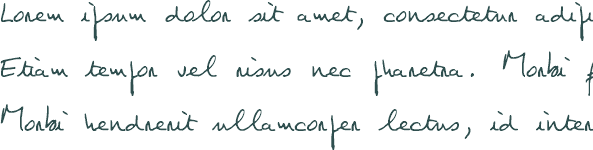 Lorem ipsum dolor sit amet, consectetur adipi
Etiam tempor vel risus nec pharetra. Morbi p
Morbi hendrerit ullamcorper lectus, id inter